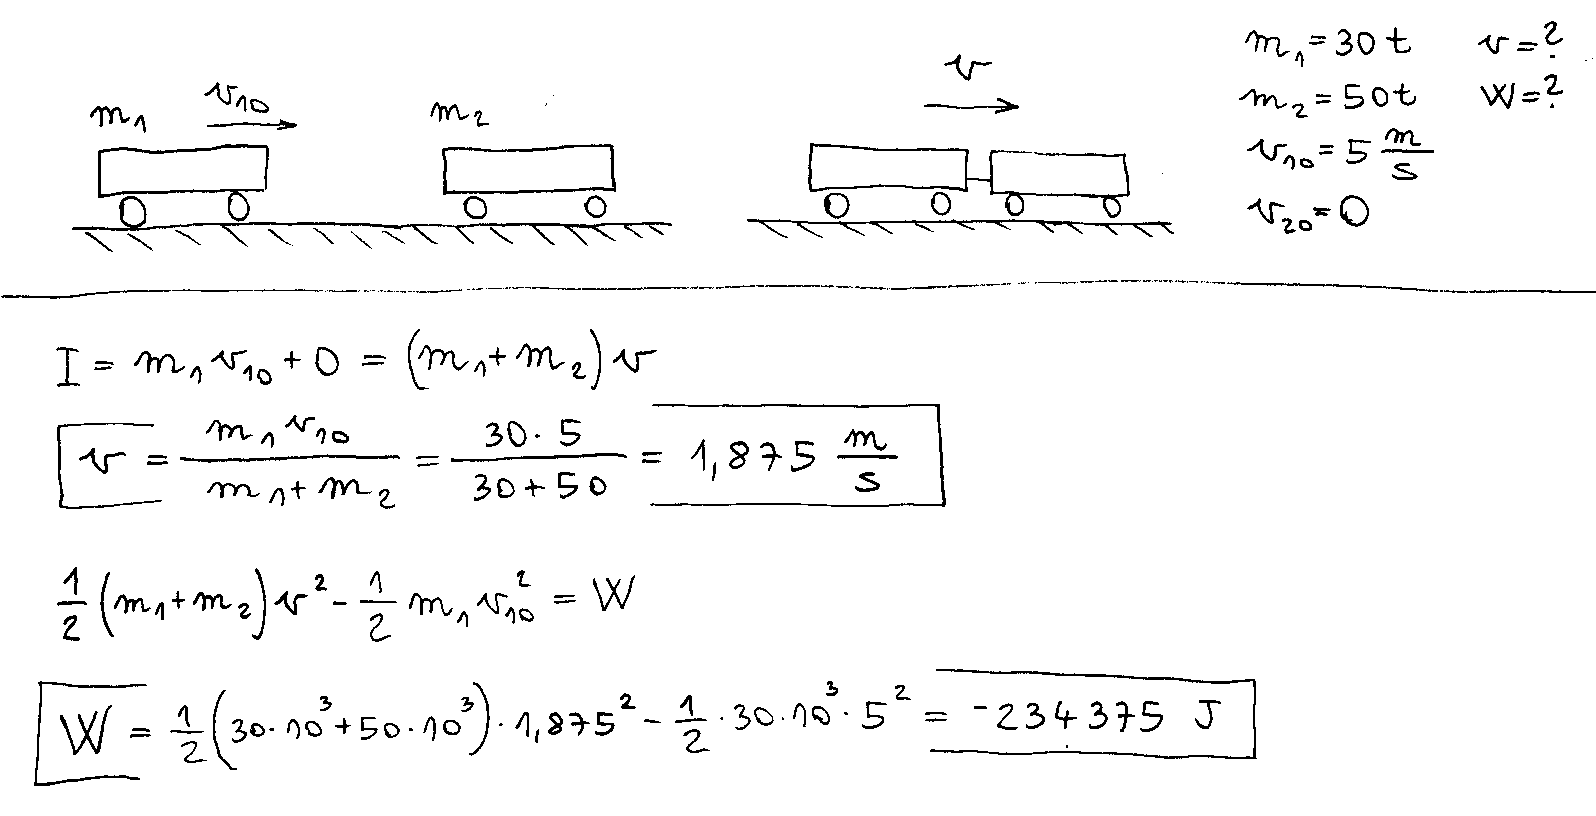 m₁ v₁₀ m₂ v
m₁ = 30 t v = ?
m₂ = 50 t W = ?
v₁₀ = 5 m/s
v₂₀ = 0
I = m₁ v₁₀ + 0 = (m₁ + m₂) v
v = (m₁ v₁₀)/(m₁ + m₂) = (30 · 5)/(30 + 50) = 1,875 m/s
1/2 (m₁ + m₂) v² - 1/2 m₁ v₁₀² = W
W = 1/2 (30 · 10³ + 50 · 10³) · 1,875² - 1/2 · 30 · 10³ · 5² = -234375 J